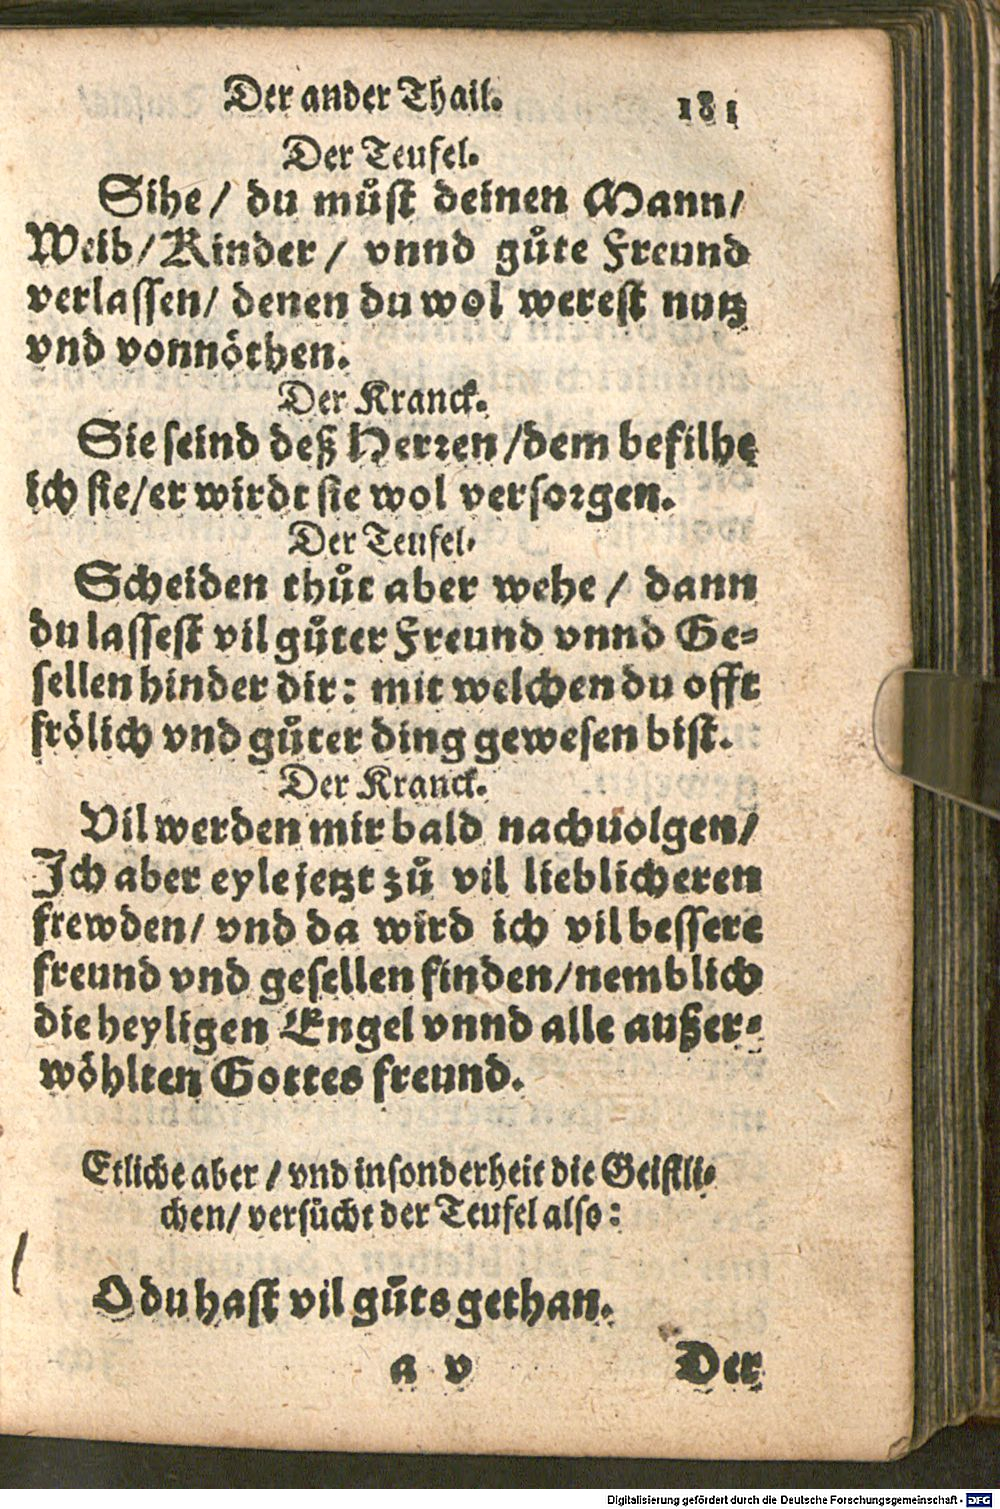 Der ander Thail. 181
Der Teufel.
Sihe / du můſt deinen Mann/
Weib/Kinder / vnnd gůte Freund
verlaſſen/ denen du wol wereſt nutz
vnd vonnöthen.
Der Kranck.
Sie ſeind deß Herren /dem befilhe
ich ſie/er wirdt ſie wol verſorgen.
Der Teufel.
Scheiden thůt aber wehe / dann
du laſſeſt vil gůter Freund vnnd Ge-
ſellen hinder dir: mit welchen du offt
frölich vnd gůter ding geweſen biſt.
Der Kranck.
Vil werden mir bald nachuolgen/
Ich aber eyle jetzt zů vil lieblicheren
frewden/ vnd da wird ich vil beſſere
freund vnd geſellen finden/nemblich
die heyligen Engel vnnd alle außer-
wöhlten Gottes freund.
Etliche aber / vnd inſonderheit die Geiſtli-
chen/ verſůcht der Teufel alſo:
O du haſt vil gůts gethan.
a v Der
Digitalisierung gefördert durch die Deutsche Forschungsgemeinschaft - DFG